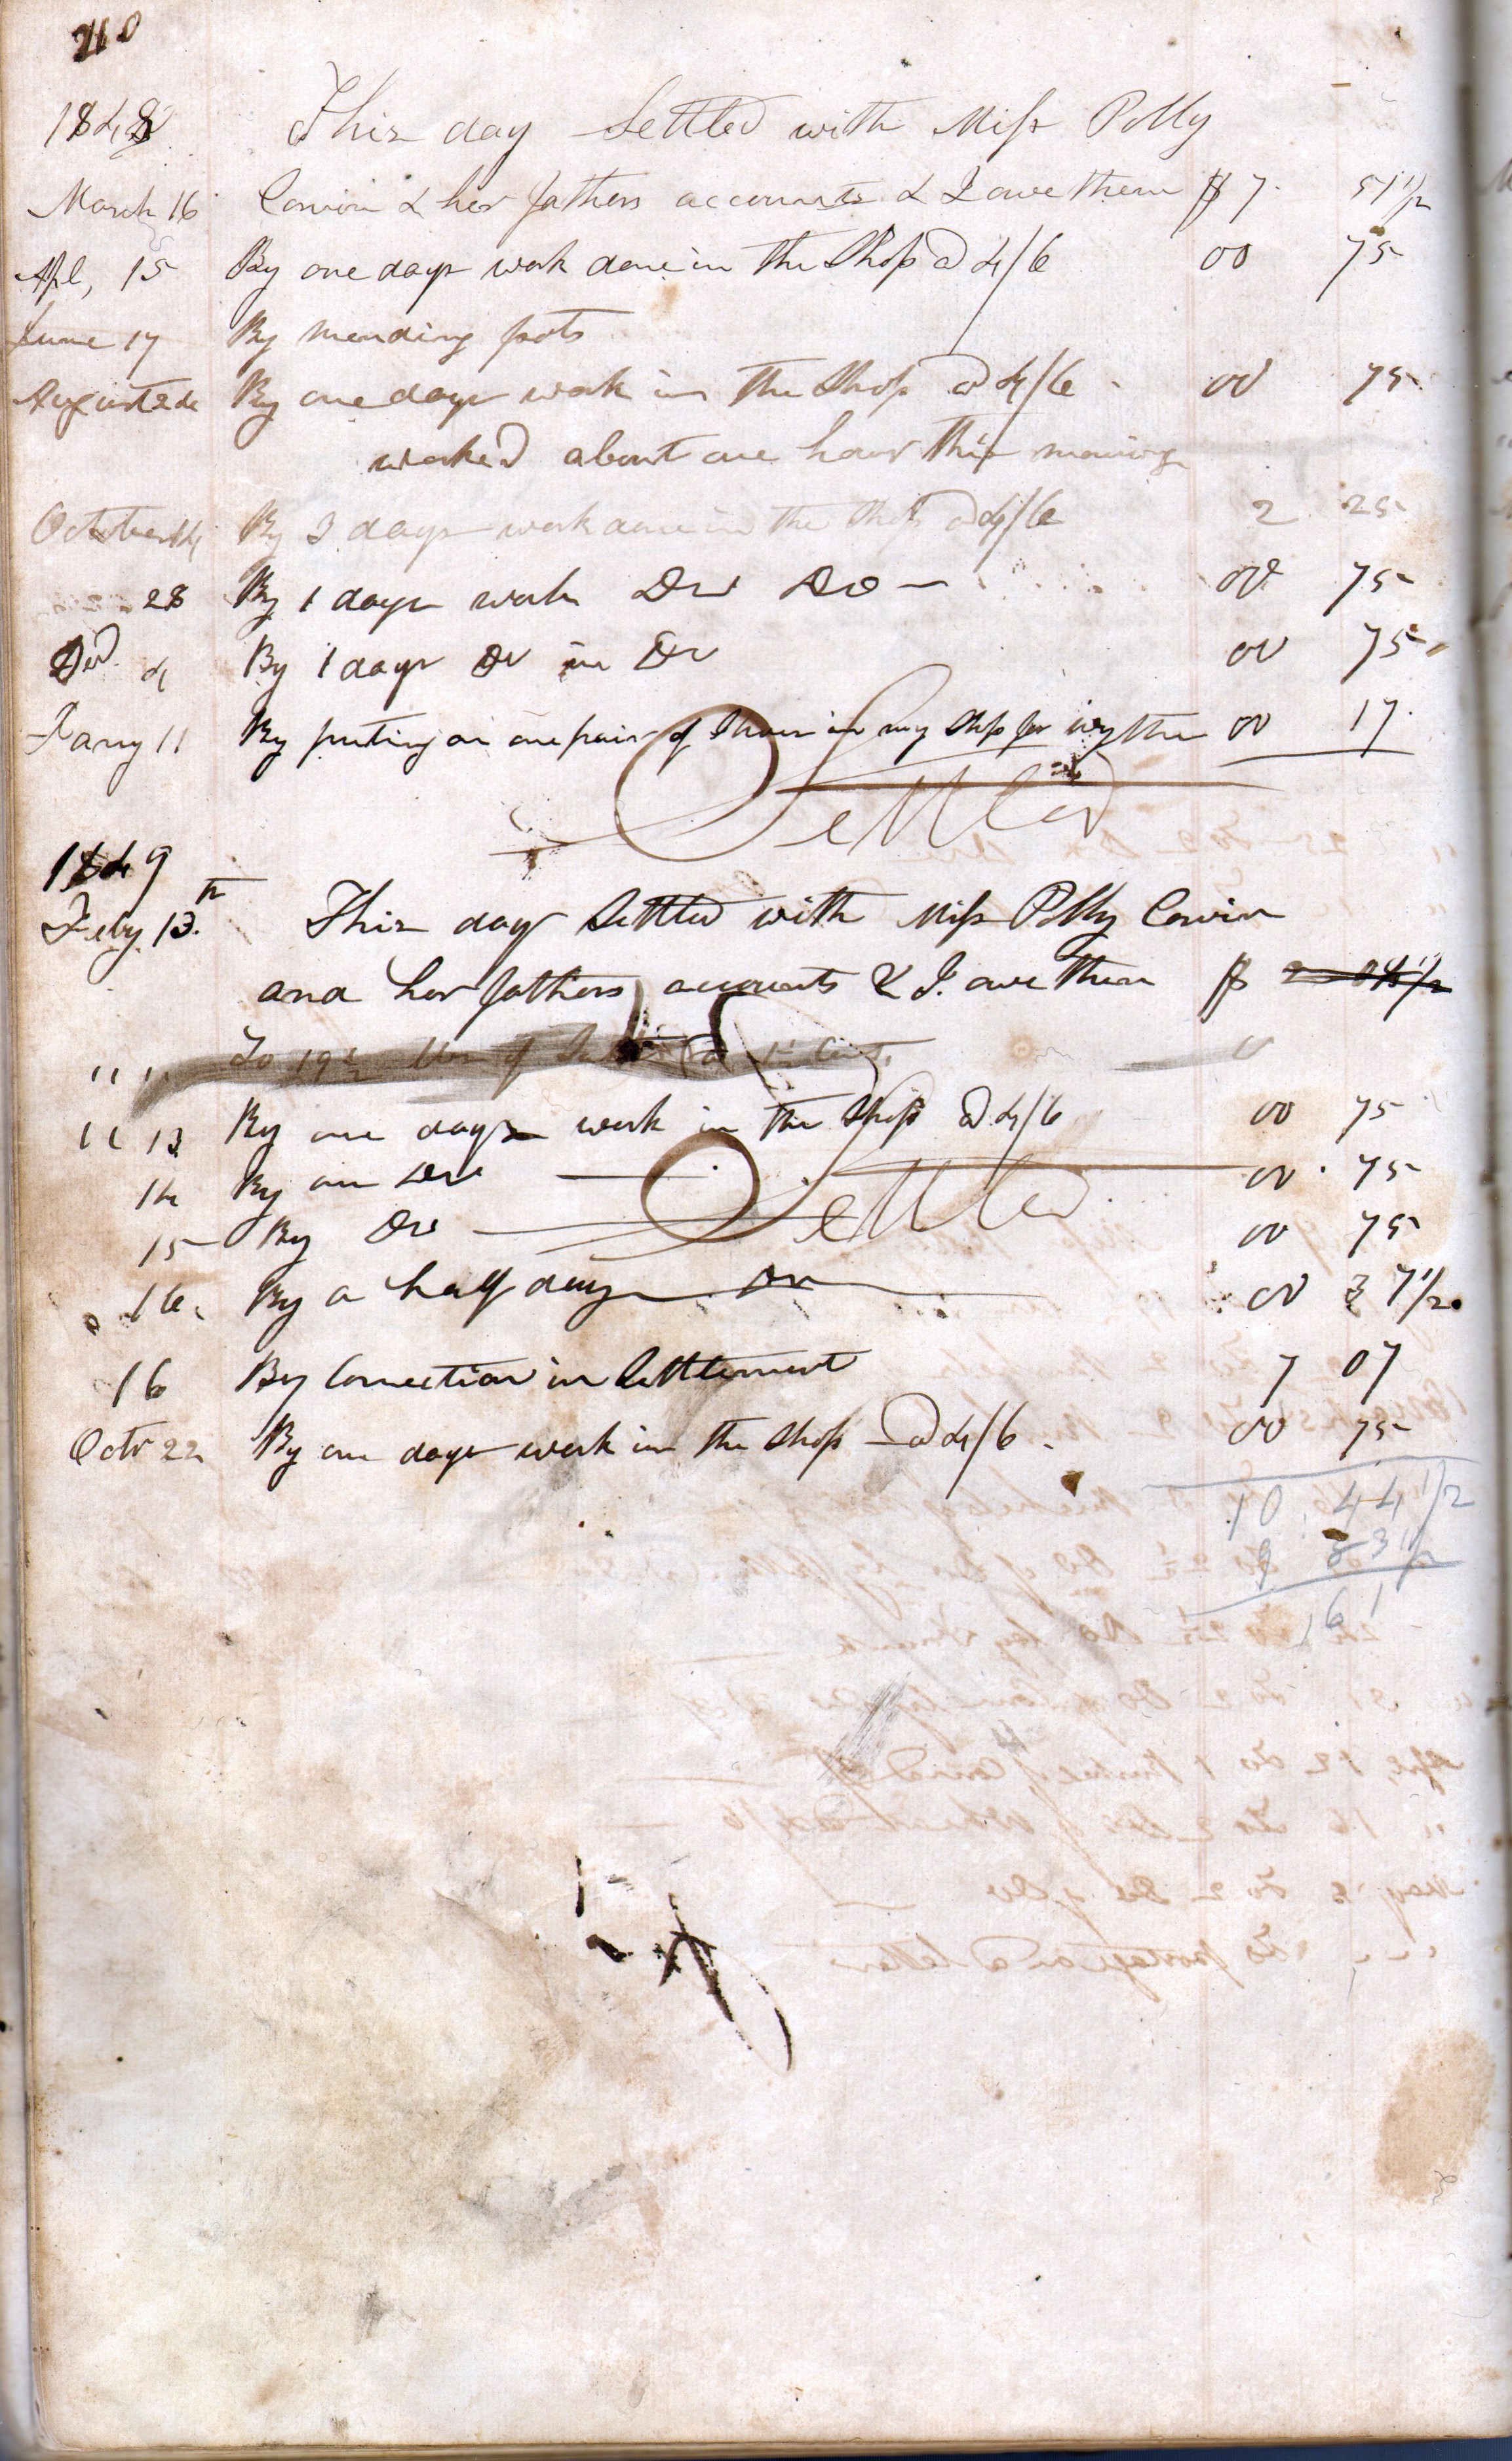 210
1848 This day Settled with Miss Polly
March 16 Corwin & her fathers accounts & I owe them $ 7. 51 1/2
Apl, 15 By one days work done in the Shop @ 4/6 00 75
June 17 By mending pots
August 24 By one days work in the Shop @ 4/6 00 75
worked about one hour this morning
October 14 By 3 days work done in the Shop @ 4/6 2 25
28 By 1 days work Do Do 00 75
4 By 1 days Do in Do 00 75
Jany 11 By puting on one pair of Shoes in my Shop for 00 17
Settled
1849
Feby 13th This day Settled with Miss Polly Corwin
and her fathers accounts & I owe them $
" " To 19 1/2 lbs of
" 13 By one days work in the Shop @ 4/6 00 75
14 By one Do 00 75
Settled
15 By Do 00 75
16 By a half day Do 00 37 1/2
16 By Correction in Settlement 7 07
Octr 22 By one days work in the Shop @ 4/6 00 75
10 44 1/2
9 83 1/2
61